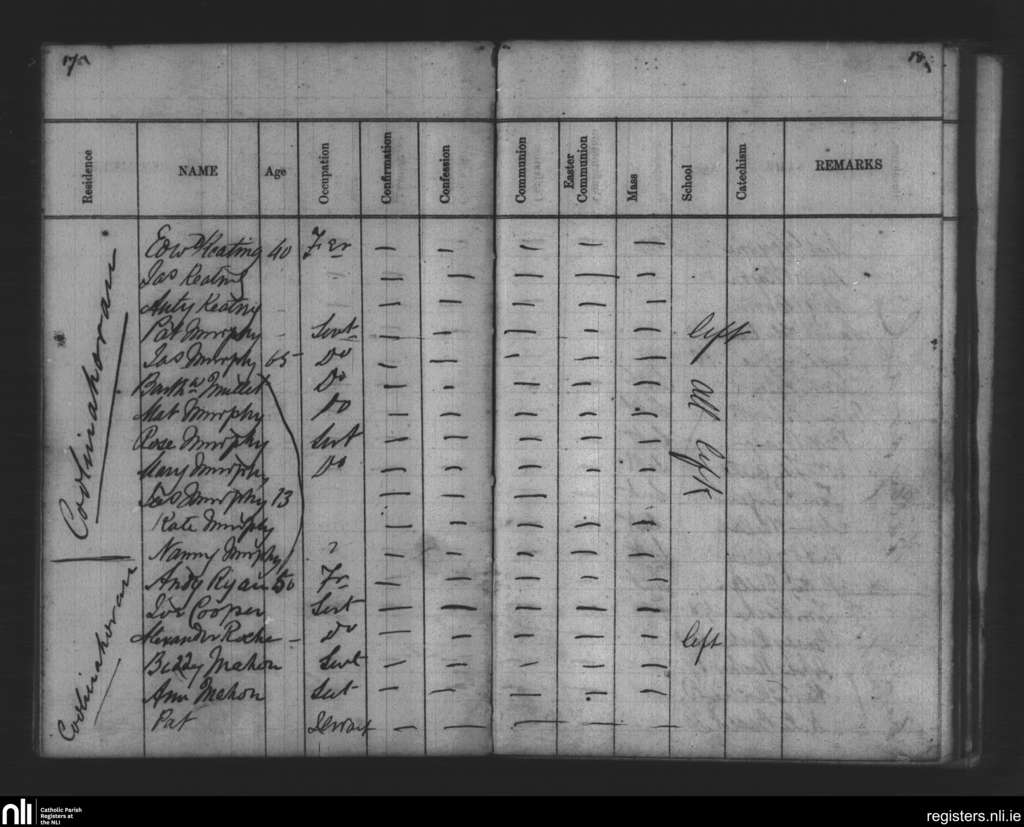 17
18
Residence NAME Age Occupation Confirmation Confession Communion Easter Communion Mass School Catechism REMARKS
Coolinahoran
Edwd Keating 40 Frer — — — — —
Jas Keating — — — — —
Anty Keatny — — — — —
Pat Murphy — Servt — — — — — left
Jas Murphy 65 Do — — — — —
Barthw Millet Do — — — — —
Mat Murphy Do — — — — —
Rose Murphy Sert — — — — —
Mary Murphy Do — — — — —
Jas Murphy 13 — — —
Kate Murphy — — — — —
Nanny Murphy ? — — — — —
all left
Coolinahoran
Andy Ryan 50 Fr — — — — —
Jos Cooper Sert — — — — —
Alexander Roche — Do — — — — — left
Bizzy Mahon Servt — — — — —
Ann Mahon Sert — — — — —
Pat Servant — — — — —
nli
Catholic Parish
Registers at
the NLI
registers.nli.ie